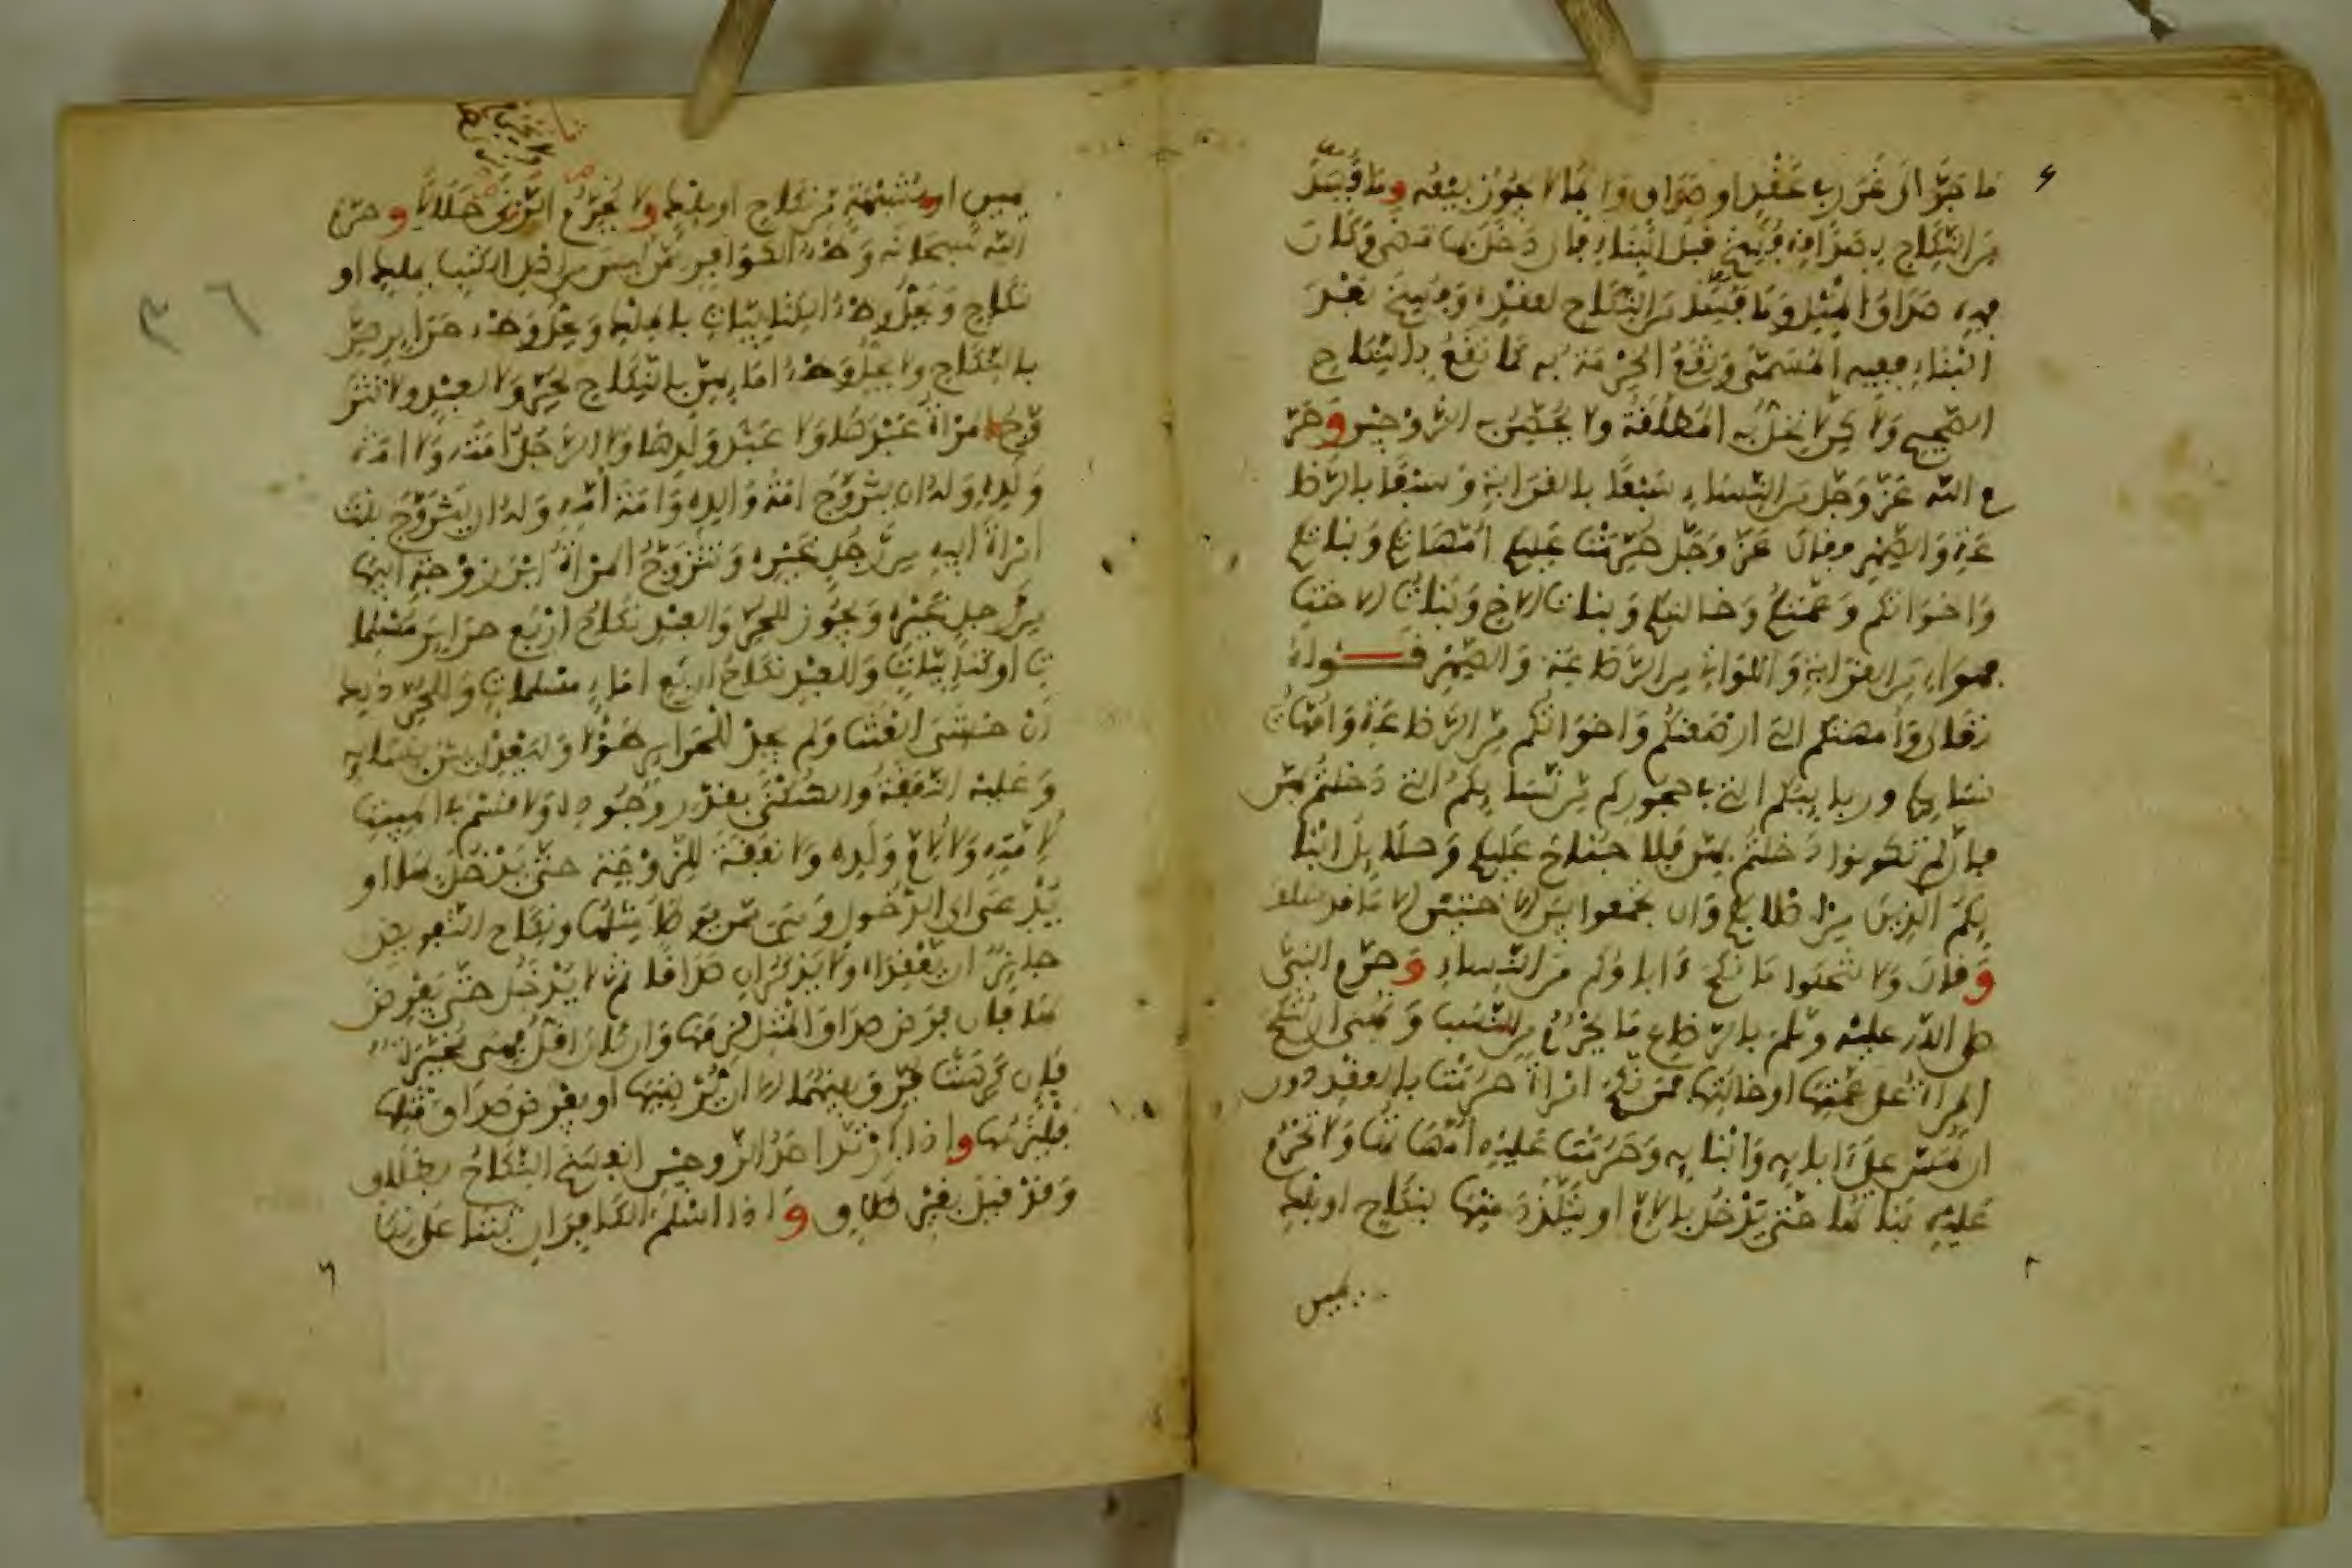 ما جر الى غرر في عقد او صداق ولا بما لا يجوز بيعه وما فسد
من النكاح بصداقه فسخ قبل البناء فإن دخل بها مضى وكان
فيه صداق المثل وما فسد من النكاح لعقده وفسخ بعد
البناء ففيه المسمى وتقع الحرمة به كما تقع بالنكاح
الصحيح ولا كن لا تحل به المطلقة ولا يحصن الزوجين وحر
م الله عز وجل من النساء سبعا بالقرابة وسبعا بالرضا
عة والصهر فقال عز وجل حرمت عليكم امهاتكم وبناتكم
واخواتكم وعمتكم وخالتكم وبنات الاخ وبنات الاخت
فهؤلاء من القرابة واللواتي من الرضاعة والصهر قـــوله
تعلى وامهتكم التي ارضعنكم واخواتكم من الرضاعة وامهات
نسايكم وربايبكم التي في حجوركم من نسايكم التي دخلتم بهن
فإن لم تكونوا دخلتم بهن فلا جناح عليكم وحلايل ابنا
يكم الذين من اصلابكم وان تجمعوا بين الاختين الا ما قد سلف
وقال ولا تنكحوا ما نكح ءاباؤكم من النساء وحرم النبي
صلى الله عليه وسلم بالرضاع ما يحرم من النسب ونهى ان تنكح
المراة على عمتها او خالتها فمن نكح امراة حرمت بالعقد دون
ان تمس على ءابايه وابنايه وحرمت عليه امهاتها ولا تحرم
عليه بناتها حتى يدخل بالام او يتلذذ منها بنكاح او ملك
يمين
يمين او بشبهة من نكاح او ملك ولا يحرم الزنى حلالا وحرم
الله سبحانه وطء الكوافر ممن ليس من اهل الكتب بملك او
نكاح ويحل وطء الكتابيات بالملك ويحل وطء حرايرهن
بالنكاح ولا يحل وطء امايهن بالنكاح لحر ولا لعبد ولا تتز
وج المراة عبدها ولا عبد ولدها ولا الرجل امته ولا امة
ولده وله ان يتزوج امة والده وامة امه وله ان يتزوج بنت
امراة ابيه من رجل غيره وتتزوج المراة ابن زوجة ابيها
من رجل غيره ويجوز للحر والعبد نكاح اربع حراير مسلما
ت او كتابيات وللعبد نكاح اربع اماء مسلمات وللحر ذلك
ان خشي العنت ولم يجد للحراير طولا وليعدل بين نسايه
وعليه النفقة والسكنى بقدر وجوده ولا قسم في المبيت
لامته ولا لام ولده ولا نفقة للزوجة حتى يدخل بها او
يدعى الى الدخول وهي ممن يوطا مثلها ونكاح التفويض
جايز ان يعقداه ولا يذكران صداقا ثم لا يدخل حتى يفرض
لها فإن فرض صداق المثل لزمها وان كان اقل فهي مخيرة
فإن كرهت فرق بينهما الا ان يرضيها او يفرض صداق مثلها
فيلزمها واذا ارتد احد الزوجين انفسخ النكاح بطلاق
وقد قيل بغير طلاق واذا اسلم الكافران ثبتا على نكا